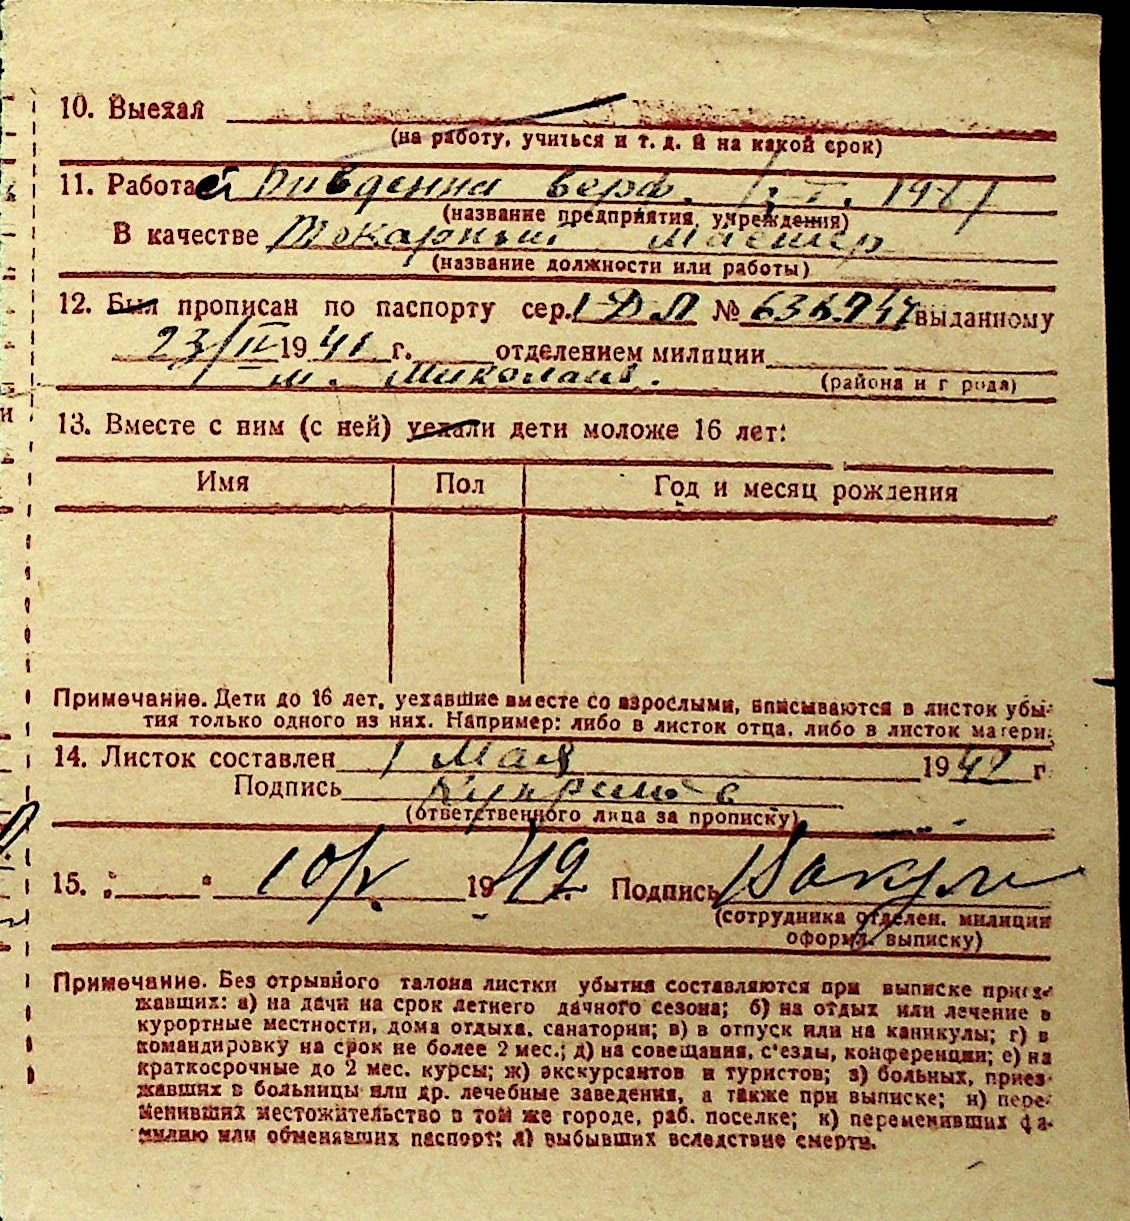 10. Выехал
(на работу, учиться и т. д. и на какой срок)
11. Работает Південна верф. 1941
(название предприятия, учреждения)
В качестве Токарный мастер
(название должности или работы)
12. Был прописан по паспорту сер. I ДЛ № выданному
23/II 1941 г. отделением милиции
м. Миколаїв.
(района и города)
13. Вместе с ним (с ней) уехали дети моложе 16 лет:
Имя Пол Год и месяц рождения
Примечание. Дети до 16 лет, уехавшие вместе со взрослыми, вписываются в листок убы-
тия только одного из них. Например: либо в листок отца, либо в листок матери.
14. Листок составлен 1 Мая 1942 г.
Подпись
(ответственного лица за прописку)
15. " " 10/V 1942 Подпись
(сотрудника отделен. милиции
оформл. выписку)
Примечание. Без отрывного талона листки убытия составляются при выписке приез-
жавших: а) на дачи на срок летнего дачного сезона; б) на отдых или лечение в
курортные местности, дома отдыха, санатории; в) в отпуск или на каникулы; г) в
командировку на срок не более 2 мес.; д) на совещания, с'езды, конференции; е) на
краткосрочные до 2 мес. курсы; ж) экскурсантов и туристов; з) больных, приез-
жавших в больницы или др. лечебные заведения, а также при выписке; и) пере-
менивших местожительство в том же городе, раб. поселке; к) переменивших фа-
милию или обменявших паспорт; л) выбывших вследствие смерти.